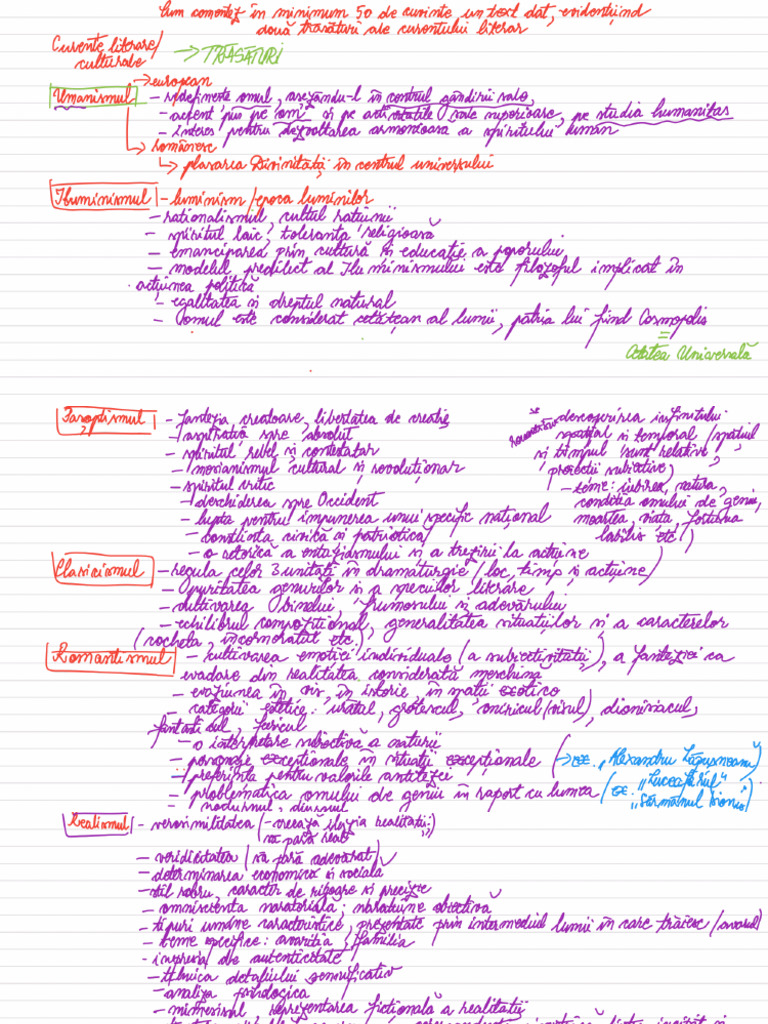 Cum comentez în minimum 50 de cuvinte un text dat, evidențiind
două trăsături ale curentului literar
Curente literare/
culturale → TRĂSĂTURI
Umanismul → european
- redefinește omul, așezându-l în centrul gândirii sale,
- accent pus pe "om" și pe activitățile sale superioare, pe studia humanitas
- interes pentru dezvoltarea armonioasă a spiritului uman
→ românesc
↳ plasarea Divinității în centrul universului
Iluminismul - luminism / epoca luminilor
- raționalismul, cultul rațiunii
- spiritul laic, toleranța religioasă
- emanciparea prin cultură și educație a poporului
- modelul predilect al Iluminismului este filozoful implicat în
acțiunea politică
- egalitatea și dreptul natural
- omul este considerat cetățean al lumii, patria lui fiind Cosmopolis
=
Cetatea Universală
Pașoptismul - fantezia creatoare, libertatea de creație
- aspirația spre absolut
- spiritul rebel și contestatar
- mesianismul cultural și revoluționar
- spiritul critic
- deschiderea spre Occident
- lupta pentru impunerea unui specific național
- conștiința civică și patriotică
- o retorică a entuziasmului și a trezirii la acțiune
- descoperirea infinitului
spațial și temporal / spațiul
și timpul sunt relative,
proiecții subiective
- teme: iubirea, natura,
condiția omului de geniu,
moartea, viața, fortuna
labilis etc
Clasicismul - regula celor 3 unități în dramaturgie / loc, timp și acțiune)
- puritatea genurilor și a speciilor literare
- cultivarea binelui, frumosului și adevărului
- echilibrul compozițional, generalitatea situațiilor și a caracterelor
(cocheta, încornoratul etc.)
Romantismul - cultivarea emoției individuale (a subiectivității), a fanteziei ca
evadare din realitatea considerată meschină
- evaziunea în vis, în istorie, în spații exotice
- categorii estetice: urâtul, grotescul, oniricul (visul), dionisiacul,
fantasticul, feericul
- o interpretare subiectivă a naturii
- personaje excepționale în situații excepționale (→ ex. "Alexandru Lăpușneanu")
- preferința pentru valorile antitezei
- problematica omului de geniu în raport cu lumea (ex: "Luceafărul"
"Sărmanul Dionis")
- nocturnul, diurnul
Realismul - verosimilitatea (- creează iluzia realității;)
să pară real
- veridicitatea (să pară adevărat)
- determinarea economică și socială
- stil sobru, caracter de rigoare și precizie
- omnisciența naratorială; narațiune obiectivă
- tipuri umane caracteristice, prezentate prin intermediul lumii în care trăiesc / avarul)
- teme specifice: avariția, familia
- impresia de autenticitate
- tehnica detaliului semnificativ
- analiza psihologică
- mimesisul, reprezentarea ficțională a realității